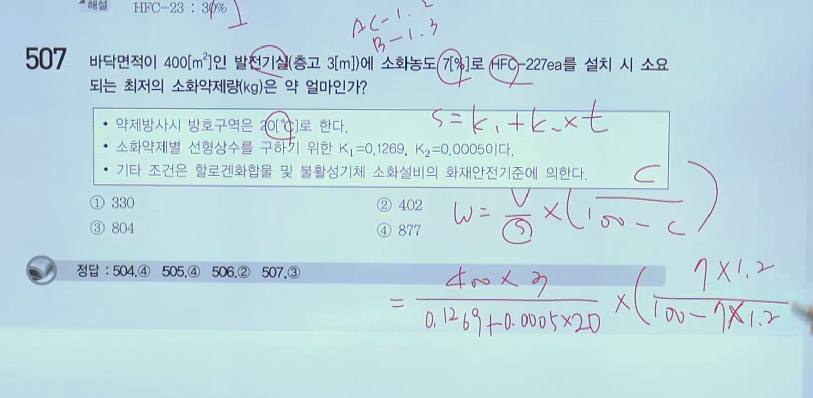 해설 HFC-23 : 30%
AC-1.2
B-1.3
507 바닥면적이 400[m²]인 발전기실(층고 3[m])에 소화농도 7[%]로 HFC-227ea를 설치 시 소요
되는 최저의 소화약제량(kg)은 약 얼마인가?
S = K₁ + K₂ × t
• 약제방사시 방호구역은 20[℃]로 한다.
• 소화약제별 선형상수를 구하기 위한 K₁=0.1269, K₂=0.0005이다.
• 기타 조건은 할로겐화합물 및 불활성기체 소화설비의 화재안전기준에 의한다.
① 330 ② 402
③ 804 ④ 877
W = V/S × (C/100-C)
정답 : 504.④ 505.④ 506.② 507.③
= 400×3/0.1269+0.0005×20 × (7×1.2/100-7×1.2